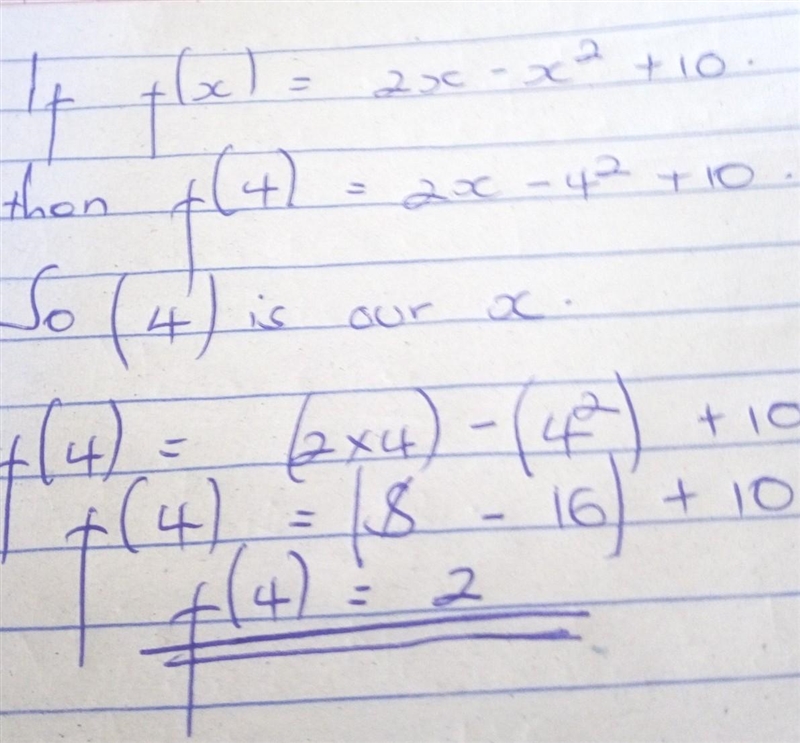 If f(x) = 2x - x² + 10.
then f(4) = 2x - 4² + 10.
So (4) is our x.
f(4) = (2×4) - (4²) + 10
f(4) = (8 - 16) + 10
f(4) = 2